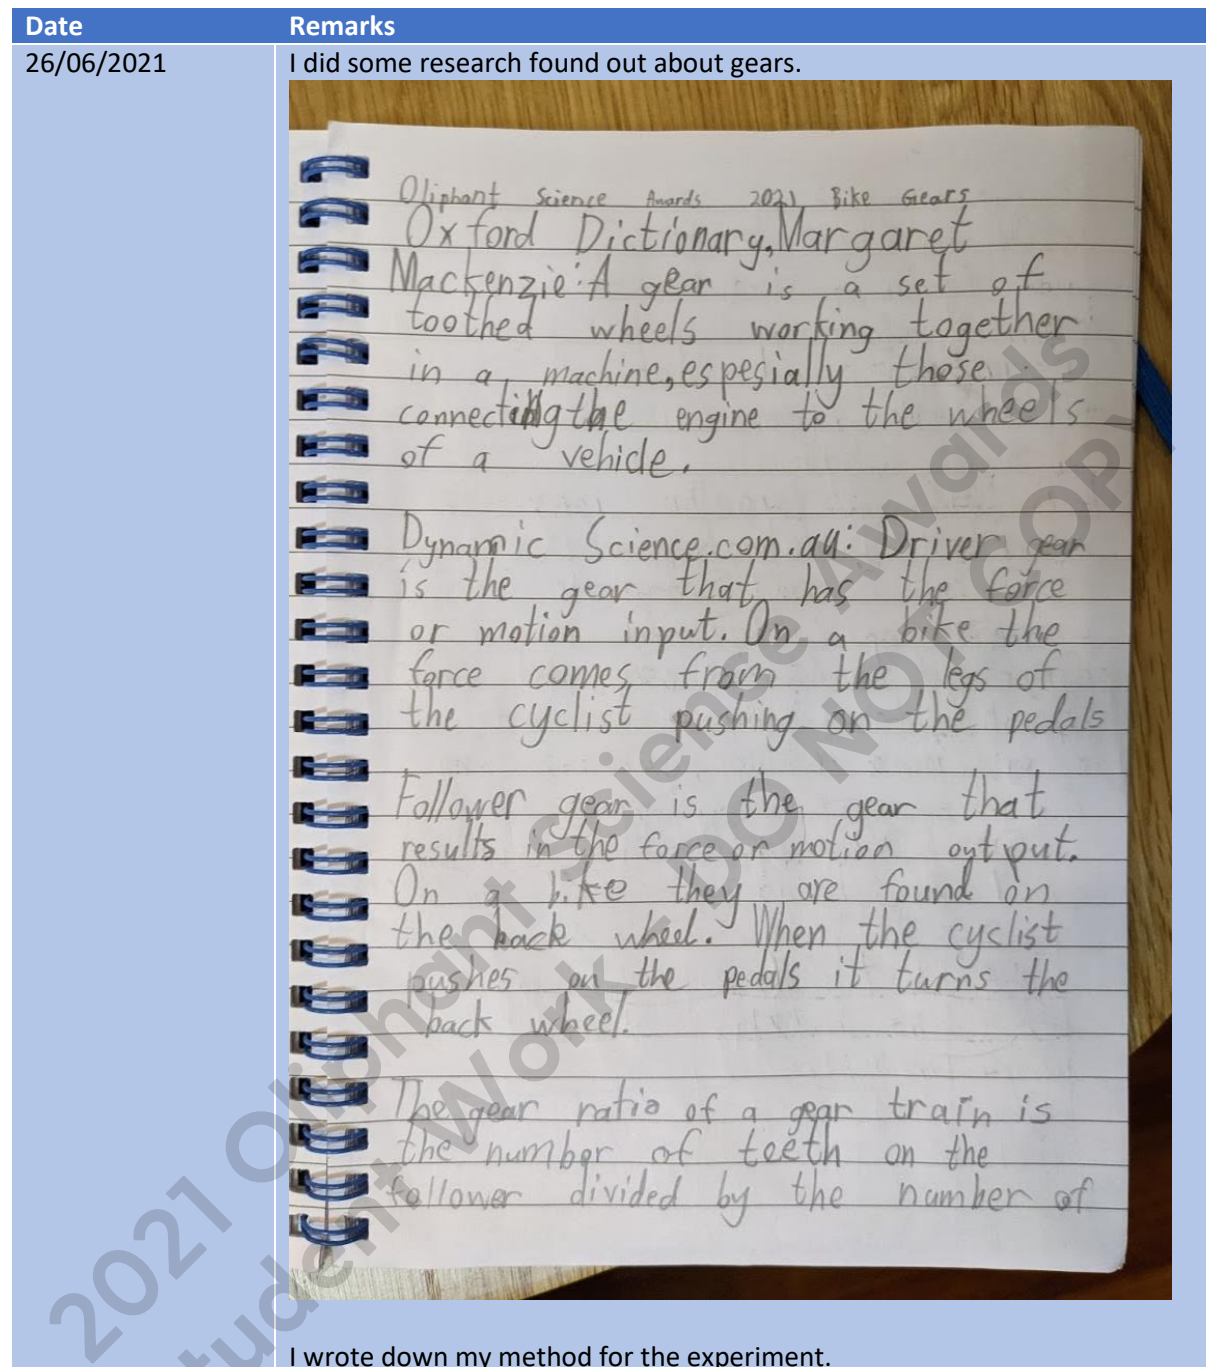 Date Remarks
26/06/2021 I did some research found out about gears.
Oliphant Science Awards 2021 Bike Gears
Oxford Dictionary, Margaret
Mackenzie: A gear is a set of
toothed wheels working together
in a machine, espesially those
connecting the engine to the wheels
of a vehicle.
Dynamic Science.com.au: Driver gear
is the gear that has the force
or motion input. On a bike the
force comes from the legs of
the cyclist pushing on the pedals
Follower gear is the gear that
results in the force or motion output.
On a bike they are found on
the back wheel. When the cyclist
pushes on the pedals it turns the
back wheel.
The gear ratio of a gear train is
the number of teeth on the
follower divided by the number of
I wrote down my method for the experiment.
2021 Oliphant Science Awards
Student Work - DO NOT COPY